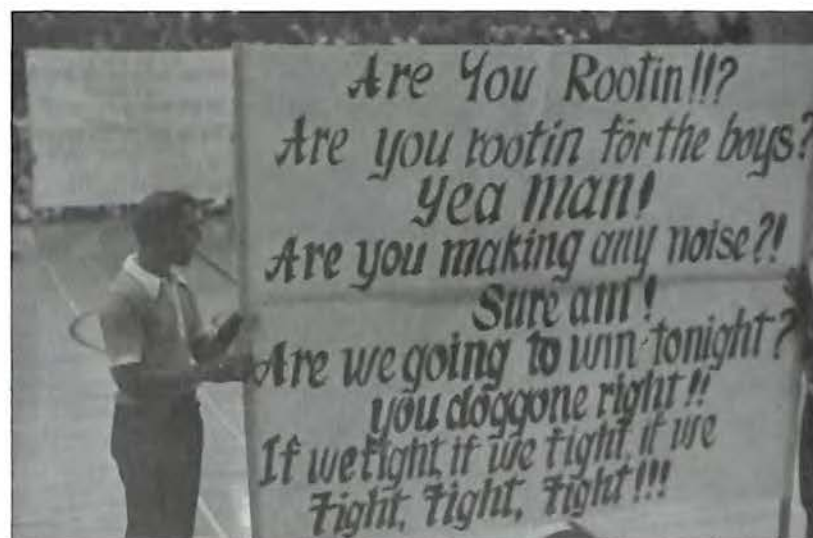 Are You Rootin!!?
Are you rootin for the boys?
Yea man!
Are you making any noise?!
Sure am!
Are we going to win tonight?
you doggone right!!
If we fight, if we fight, if we
fight, fight, fight!!!